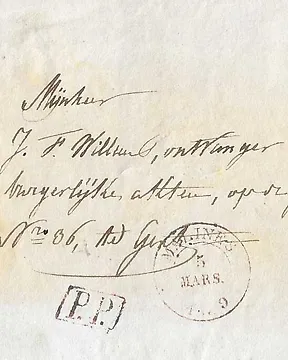 Mijnheer
J. F. Willems, ontvanger
burgerlijke akten, op de
Nro 36, te Gent
5
MARS.
9
P.P.